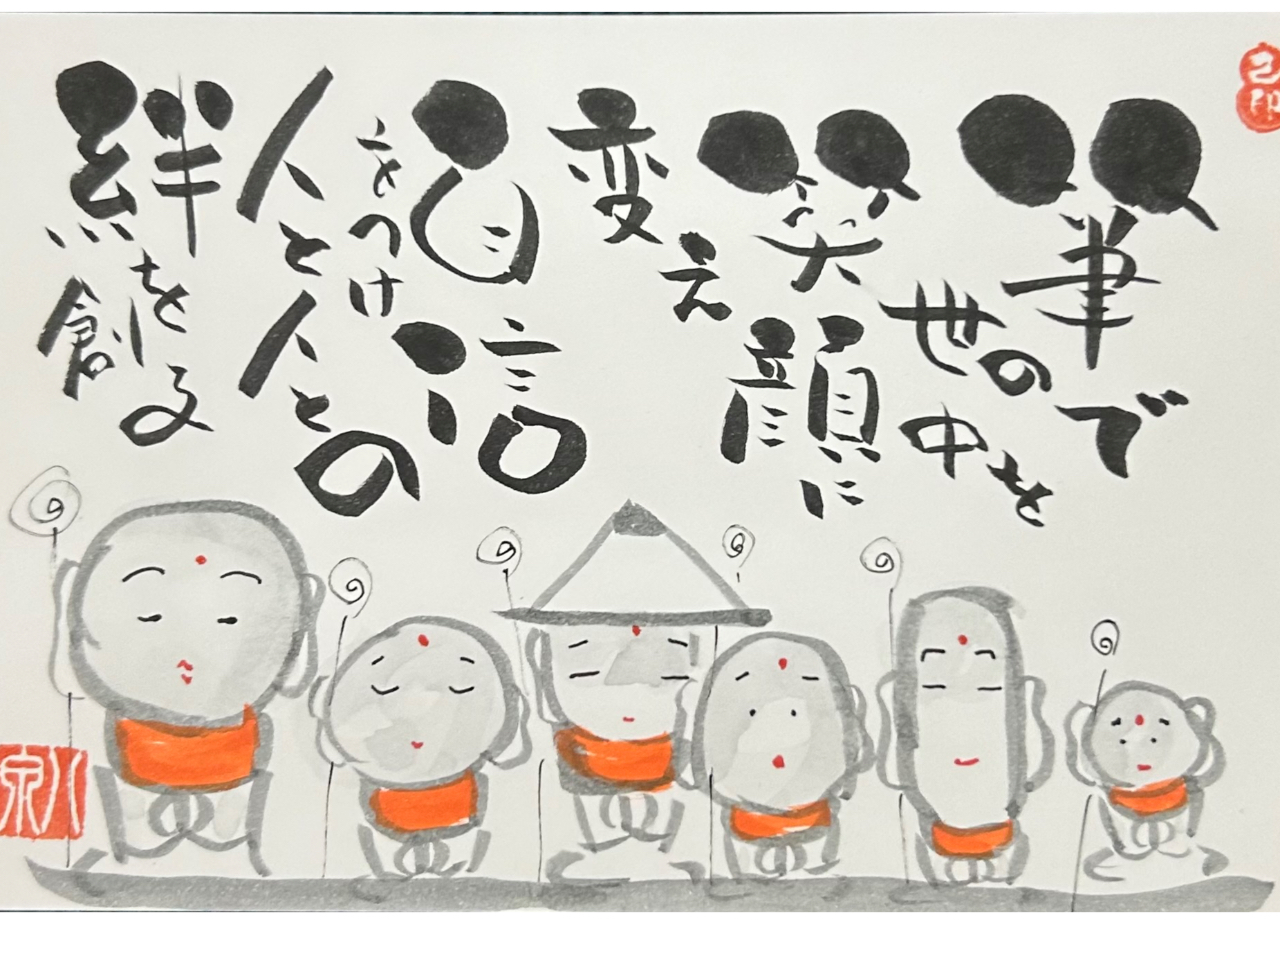 筆で
世の中を
笑顔に
変え
自信
をつけ
人と人との
絆を
創る